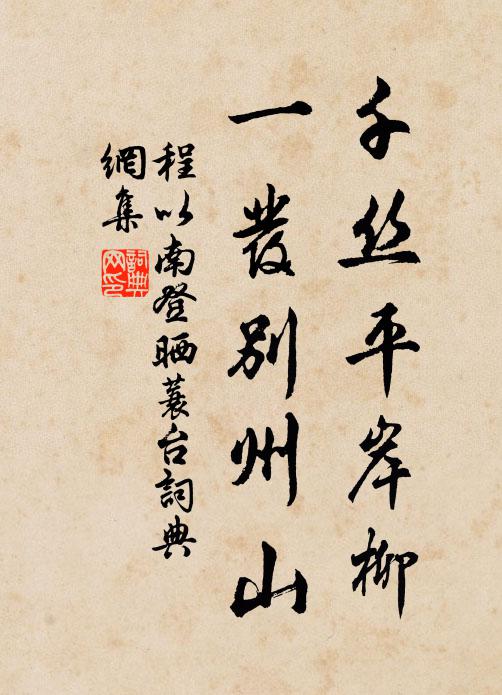 千丝平岸柳
一发别州山
程以南登晒蓑台词典
网集
词典
网印